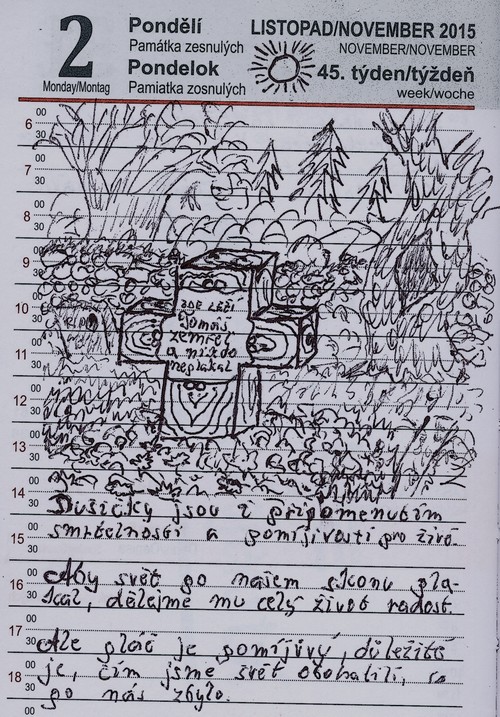 2
Monday/Montag
Pondělí
Památka zesnulých
Pondelok
Pamiatka zosnulých
LISTOPAD/NOVEMBER 2015
NOVEMBER/NOVEMBER
45. týden/týždeň
week/woche
6 00
30
7 00
30
8 00
30
9 00
30
10 00
30
11 00
30
12 00
30
13 00
30
14 00
30
15 00
30
16 00
30
17 00
30
18 00
30
00
ZDE LEŽÍ
Tomáš
zemřel
a nikdo
neplakal
Dušičky jsou i připomenutím
smrtelnosti a pomíjivosti pro živé.
Aby svět po našem skonu pla-
kal, dělejme mu celý život radost.
Ale pláč je pomíjivý, důležité
je, čím jsme svět obohatili, co
po nás zbylo.